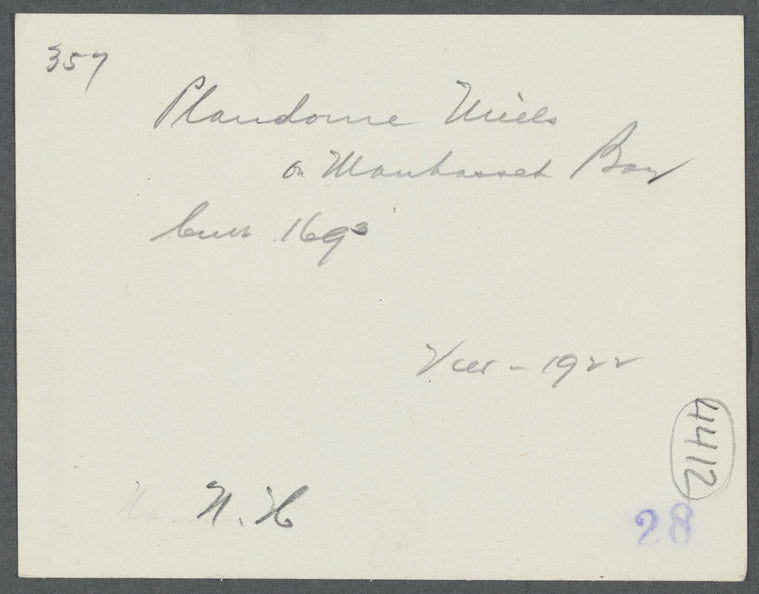 357
Plandome Mills
on Manhasset Bay
built 1693
View - 1922
4412
N. H
28